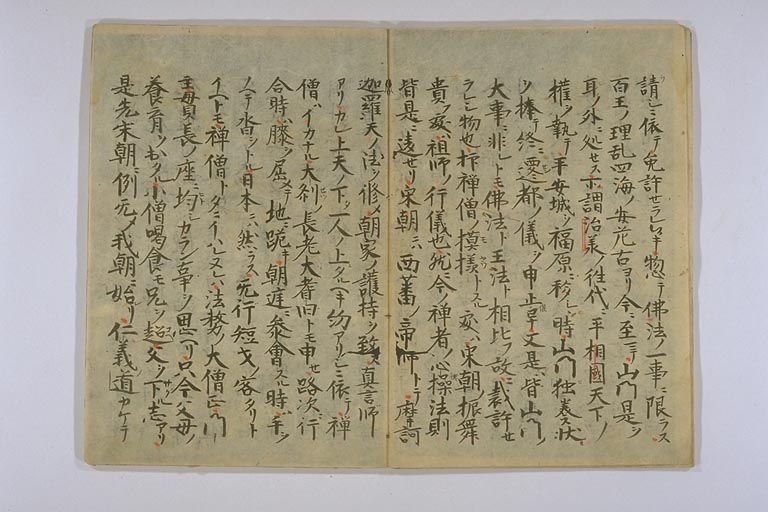 請シニ依テ免許セラレキ惣テ佛法ノ一事ニ限ラス
百王ノ理乱四海ノ安危古ヨリ今ニ至マテ山門是ヲ
耳ノ外ニ処セス所謂治承ノ往代ニ平相國天下ノ
權ヲ執テ平安城ヲ福原ニ移シヽ時山門独奏状
ヲ捧テ終ニ還都ノ儀ヲ申止キ是皆山門ノ
大事ニ非レトモ佛法ト王法ト相比フ故ニ裁許セ
ラレシ物也抑禅僧ノ摸様トスル処ハ宋朝ノ振舞
貴フ処ハ祖師ノ行儀也然今ノ禅者ノ心操法則
皆是ニ違セリ宋朝ニハ西蕃ノ帝師トテ摩訶
迦羅天ノ法ヲ修メ朝家ノ護持ヲ致ス真言師
アリカレ上天ノ下一人ノ上タルヘキ約アリシニ依テ禅
僧ハイカナル大刹ノ長老大耆旧トモ申セ路次ニ行
合時ハ膝ヲ屈メテ地ニ跪キ朝庭ニ参會スル時ハ手ヲ
ノヘテ沓ヲトル日本ニハ然ラス无行短才ノ客タリト
イヘトモ禅僧トタニイハレ又レハ法務ノ大僧正門
主貫長ノ座ニ均シカラン事ヲ思ヘリ只今父母ノ
養育ヲ出タル小僧喝食モ兄ヲ超父ヲ下志アリ
是先宋朝ニ例无ク我朝ニ始リ仁義道カケテ